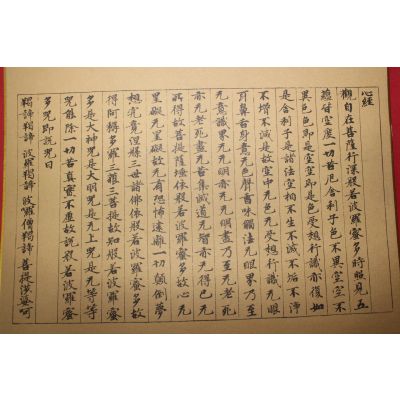 心經
觀自在菩薩行深般若波羅蜜多時照見五
蘊皆空度一切苦厄舍利子色不異空空不
異色色即是空空即是色受想行識亦復如
是舍利子是諸法空相不生不滅不垢不淨
不增不減是故空中无色无受想行識无眼
耳鼻舌身意无色聲香味觸法无眼界乃至
无意識界无无明亦无无明盡乃至无老死
亦无老死盡无苦集滅道无智亦无得以无
所得故菩提薩埵依般若波羅蜜多故心无
罣礙无罣礙故无有恐怖遠離一切顛倒夢
想究竟涅槃三世諸佛依般若波羅蜜多故
得阿耨多羅三藐三菩提故知般若波羅蜜
多是大神咒是大明咒是无上咒是无等等
咒能除一切苦真實不虛故說般若波羅蜜
多咒即說咒曰
羯諦羯諦 波羅羯諦 波羅僧羯諦 菩提薩婆訶